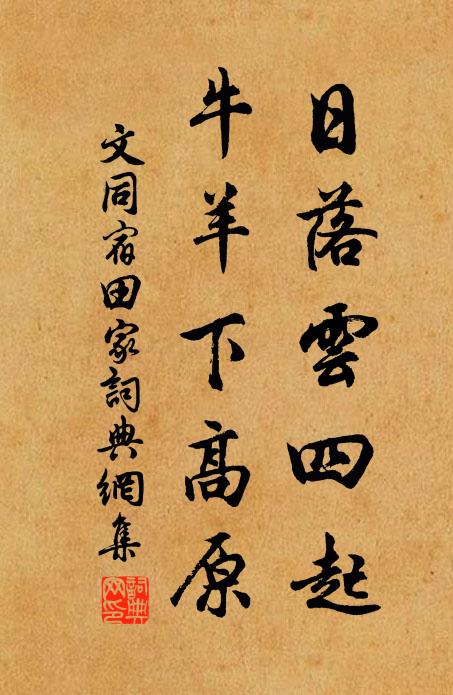 日落雲四起
牛羊下高原
文同宿田家詞典網集
詞典网印